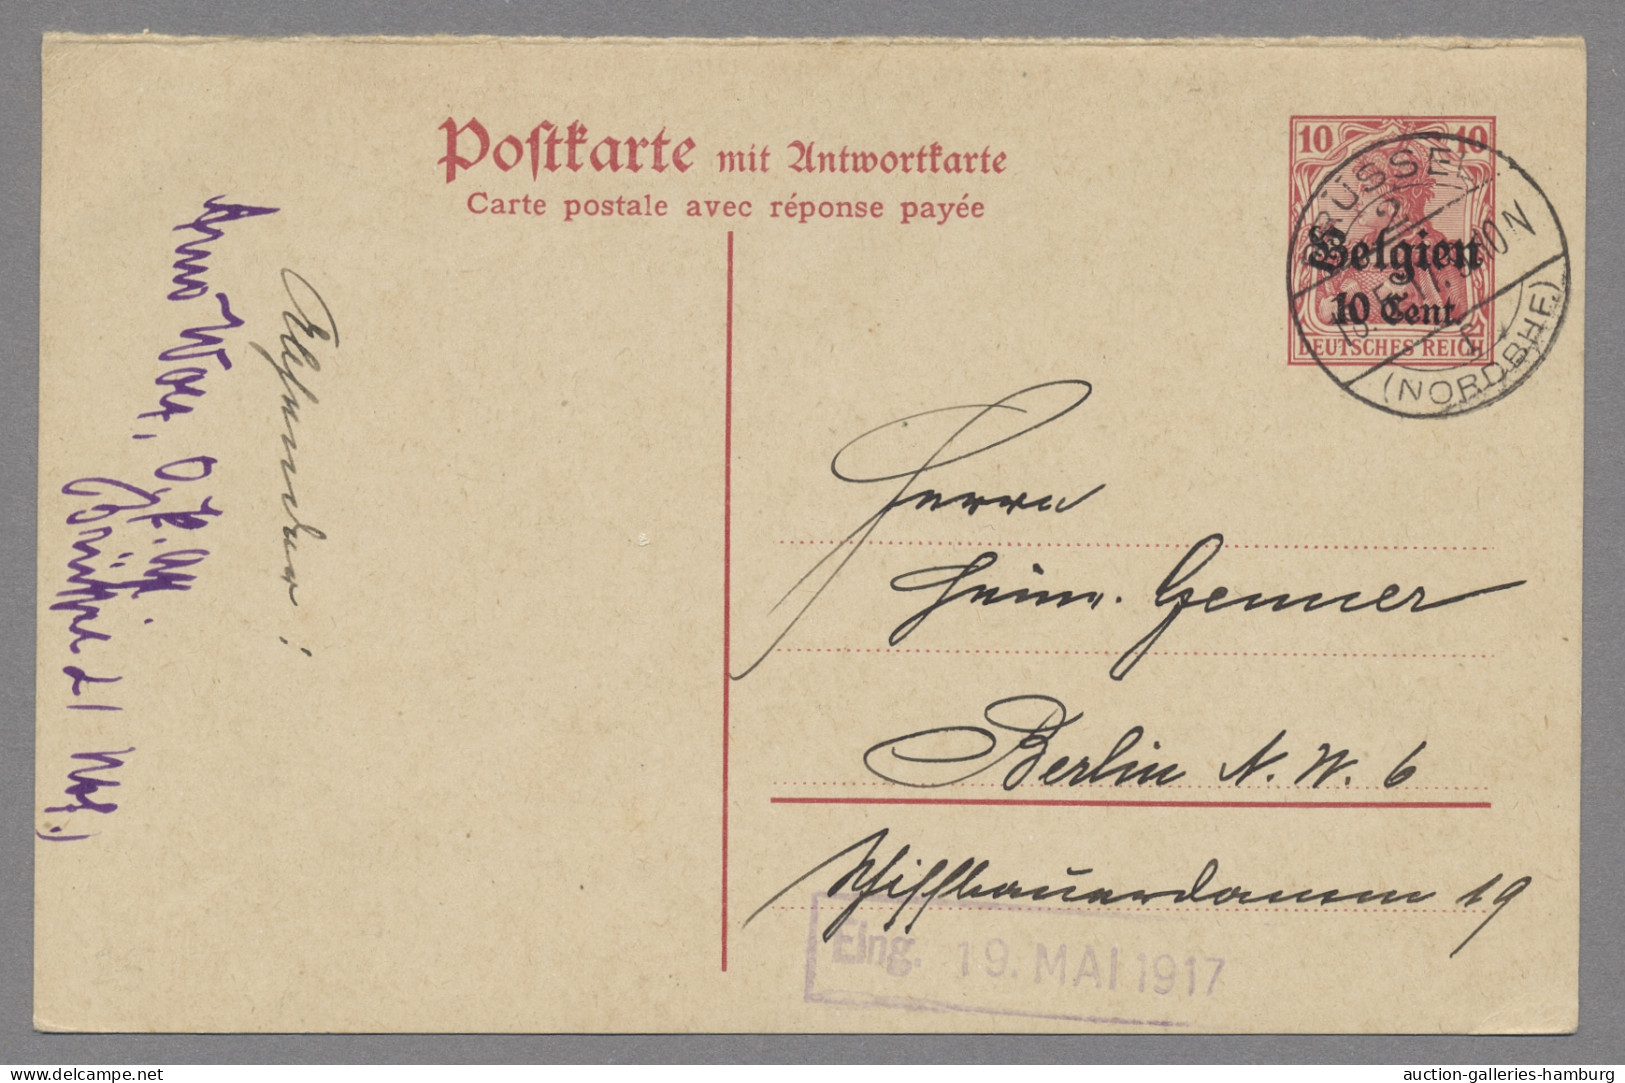 Postkarte mit Antwortkarte
Carte postale avec réponse payée
10 10
Belgien
10 Cent.
DEUTSCHES REICH
BRÜSSEL
5-10 N
(NORDBHF.)
Absender:
Brüssel
Herrn
Heinr. Genner
Berlin N. W. 6
Schiffbauerdamm 19
Eing. 19. MAI 1917
auction-galleries-hamburg